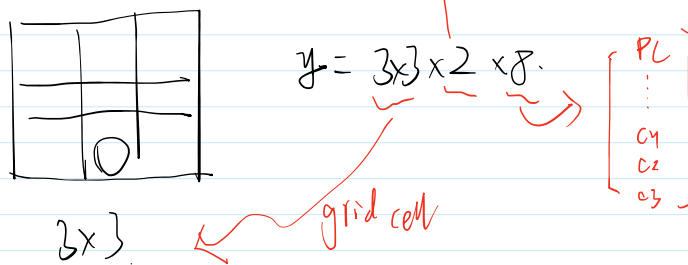 y = 3x3 x 2 x 8.
Pc
⋮
C1
C2
C3
grid cell
3 x 3